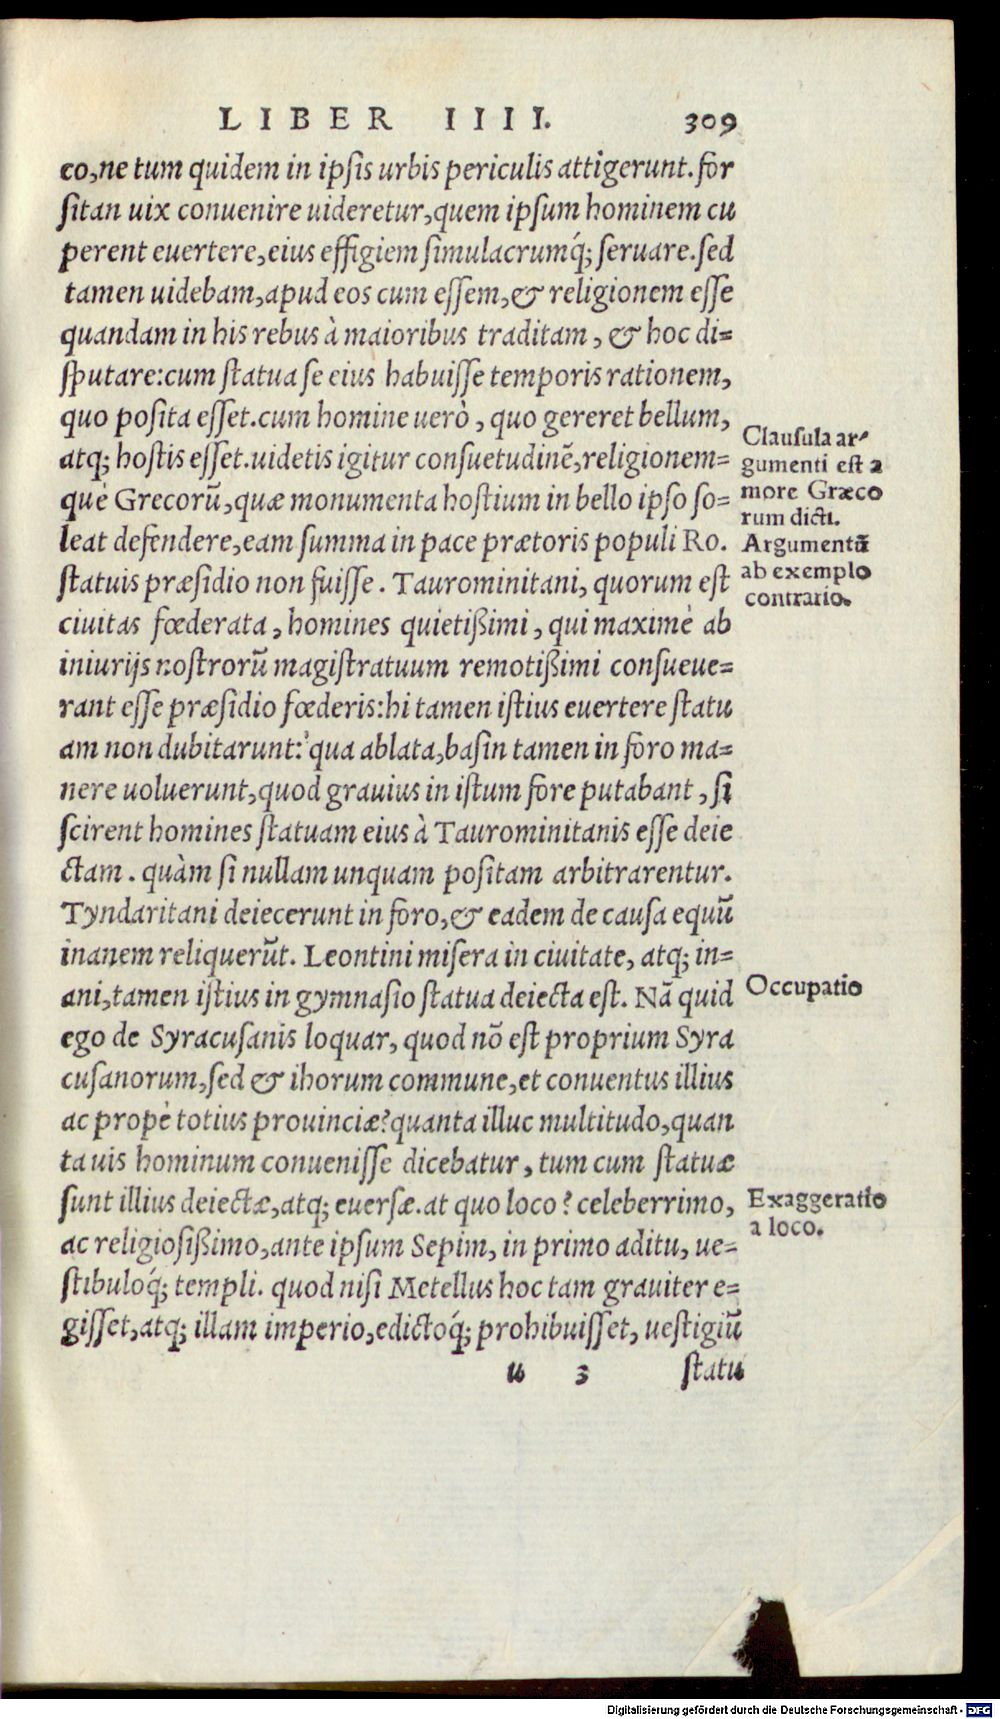 LIBER IIII. 309
co,ne tum quidem in ipſis urbis periculis attigerunt.for
ſitan uix conuenire uideretur,quem ipſum hominem cu
perent euertere,eius effigiem ſimulacrumq́; ſeruare.ſed
tamen uidebam,apud eos cum eſſem,& religionem eſſe
quandam in his rebus à maioribus traditam, & hoc di=
ſputare:cum ſtatua ſe eius habuiſſe temporis rationem,
quo poſita eſſet.cum homine uerò, quo gereret bellum,
atq; hostis eſſet.uidetis igitur conſuetudinē,religionem=
què Grecorū,quæ monumenta hoſtium in bello ipſo ſo=
leat defendere,eam ſumma in pace prætoris populi Ro.
ſtatuis præſidio non fuiſſe. Taurominitani, quorum eſt
ciuitas fœderata, homines quietißimi, qui maximè ab
iniurijs noſtrorū magiſtratuum remotißimi conſueue=
rant eſſe præſidio fœderis:hi tamen iſtius euertere ſtatu
am non dubitarunt: qua ablata,baſin tamen in foro ma=
nere uoluerunt,quod grauius in iſtum fore putabant, ſi
ſcirent homines ſtatuam eius à Taurominitanis eſſe deie
ctam. quàm ſi nullam unquam poſitam arbitrarentur.
Tyndaritani deiecerunt in foro,& eadem de cauſa equū
inanem reliquerūt. Leontini miſera in ciuitate, atq; in=
ani,tamen iſtius in gymnaſio ſtatua deiecta eſt. Nā quid
ego de Syracuſanis loquar, quod nō eſt proprium Syra
cuſanorum,ſed & ihorum commune,et conuentus illius
ac propè totius prouinciæ?quanta illuc multitudo,quan
ta uis hominum conueniſſe dicebatur, tum cum ſtatuæ
ſunt illius deiectæ,atq; euerſæ.at quo loco? celeberrimo,
ac religioſißimo,ante ipſum Sepim, in primo aditu, ue=
ſtibuloq́; templi. quod niſi Metellus hoc tam grauiter e=
giſſet,atq; illam imperio,edictoq́; prohibuiſſet, ueſtigiū
u 3 ſtatu
Clauſula ar-
gumenti eſt a
more Græco
rum dicti.
Argumentū
ab exemplo
contrario.
Occupatio
Exaggeratio
a loco.
Digitalisierung gefördert durch die Deutsche Forschungsgemeinschaft - DFG